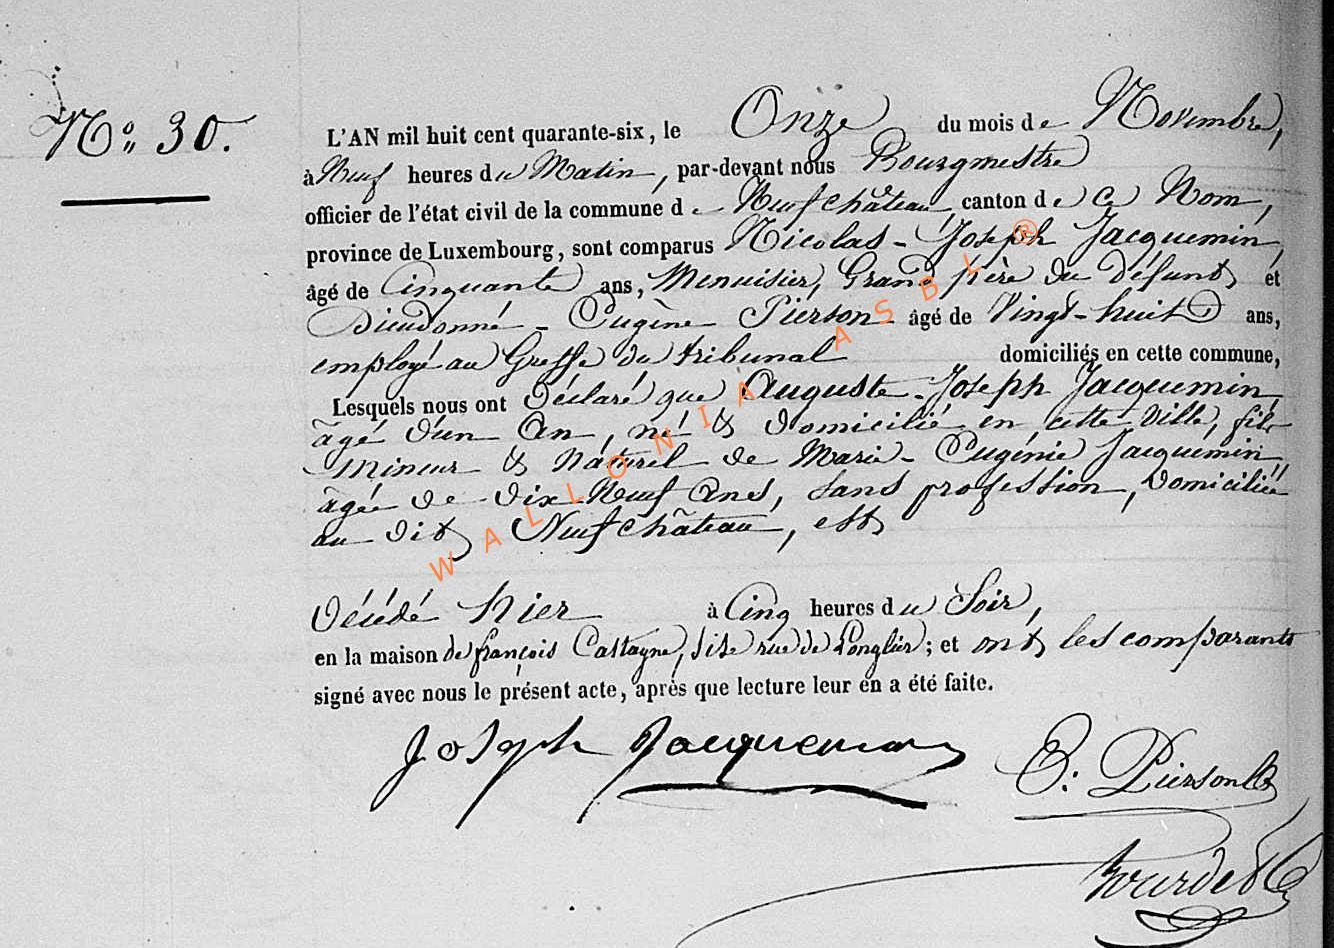 No. 30.
L'AN mil huit cent quarante-six, le Onze du mois de Novembre,
à Neuf heures du Matin, par-devant nous Bourgmestre
officier de l'état civil de la commune de Neufchâteau, canton de ce Nom,
province de Luxembourg, sont comparus Nicolas-Joseph Jacquemin,
âgé de Cinquante ans, Menuisier, Grand père du défunt et
Dieudonné-Eugène Pierson âgé de Vingt-huit ans,
employé au Greffe du tribunal domiciliés en cette commune,
Lesquels nous ont Déclaré que Auguste-Joseph Jacquemin,
âgé d'un An, né & domicilié en cette Ville, fils
Mineur & Naturel de Marie-Eugénie Jacquemin
âgée de dix Neuf Ans, sans profession, domiciliée
au dit Neufchâteau, est
Décédé hier à Cinq heures du Soir,
en la maison de françois Castagne, sise rue de Longlier; et ont les comparants
signé avec nous le présent acte, après que lecture leur en a été faite.
Joseph Jacquemin
E. Pierson
WALLONIA ASBL ®